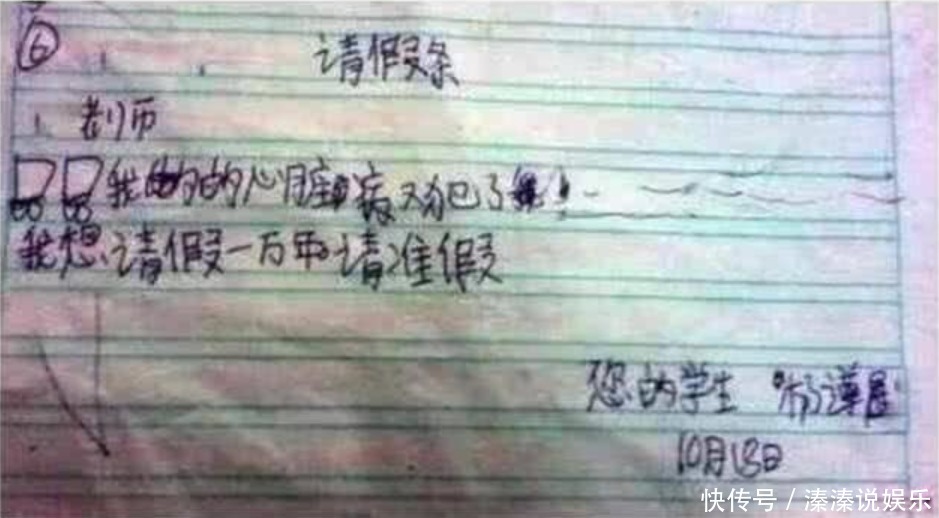 6
请假条
老师
我的的心脏病又犯了!
我想请假一万年。请准假
您的学生
10月18日
快传号/溱溱说娱乐